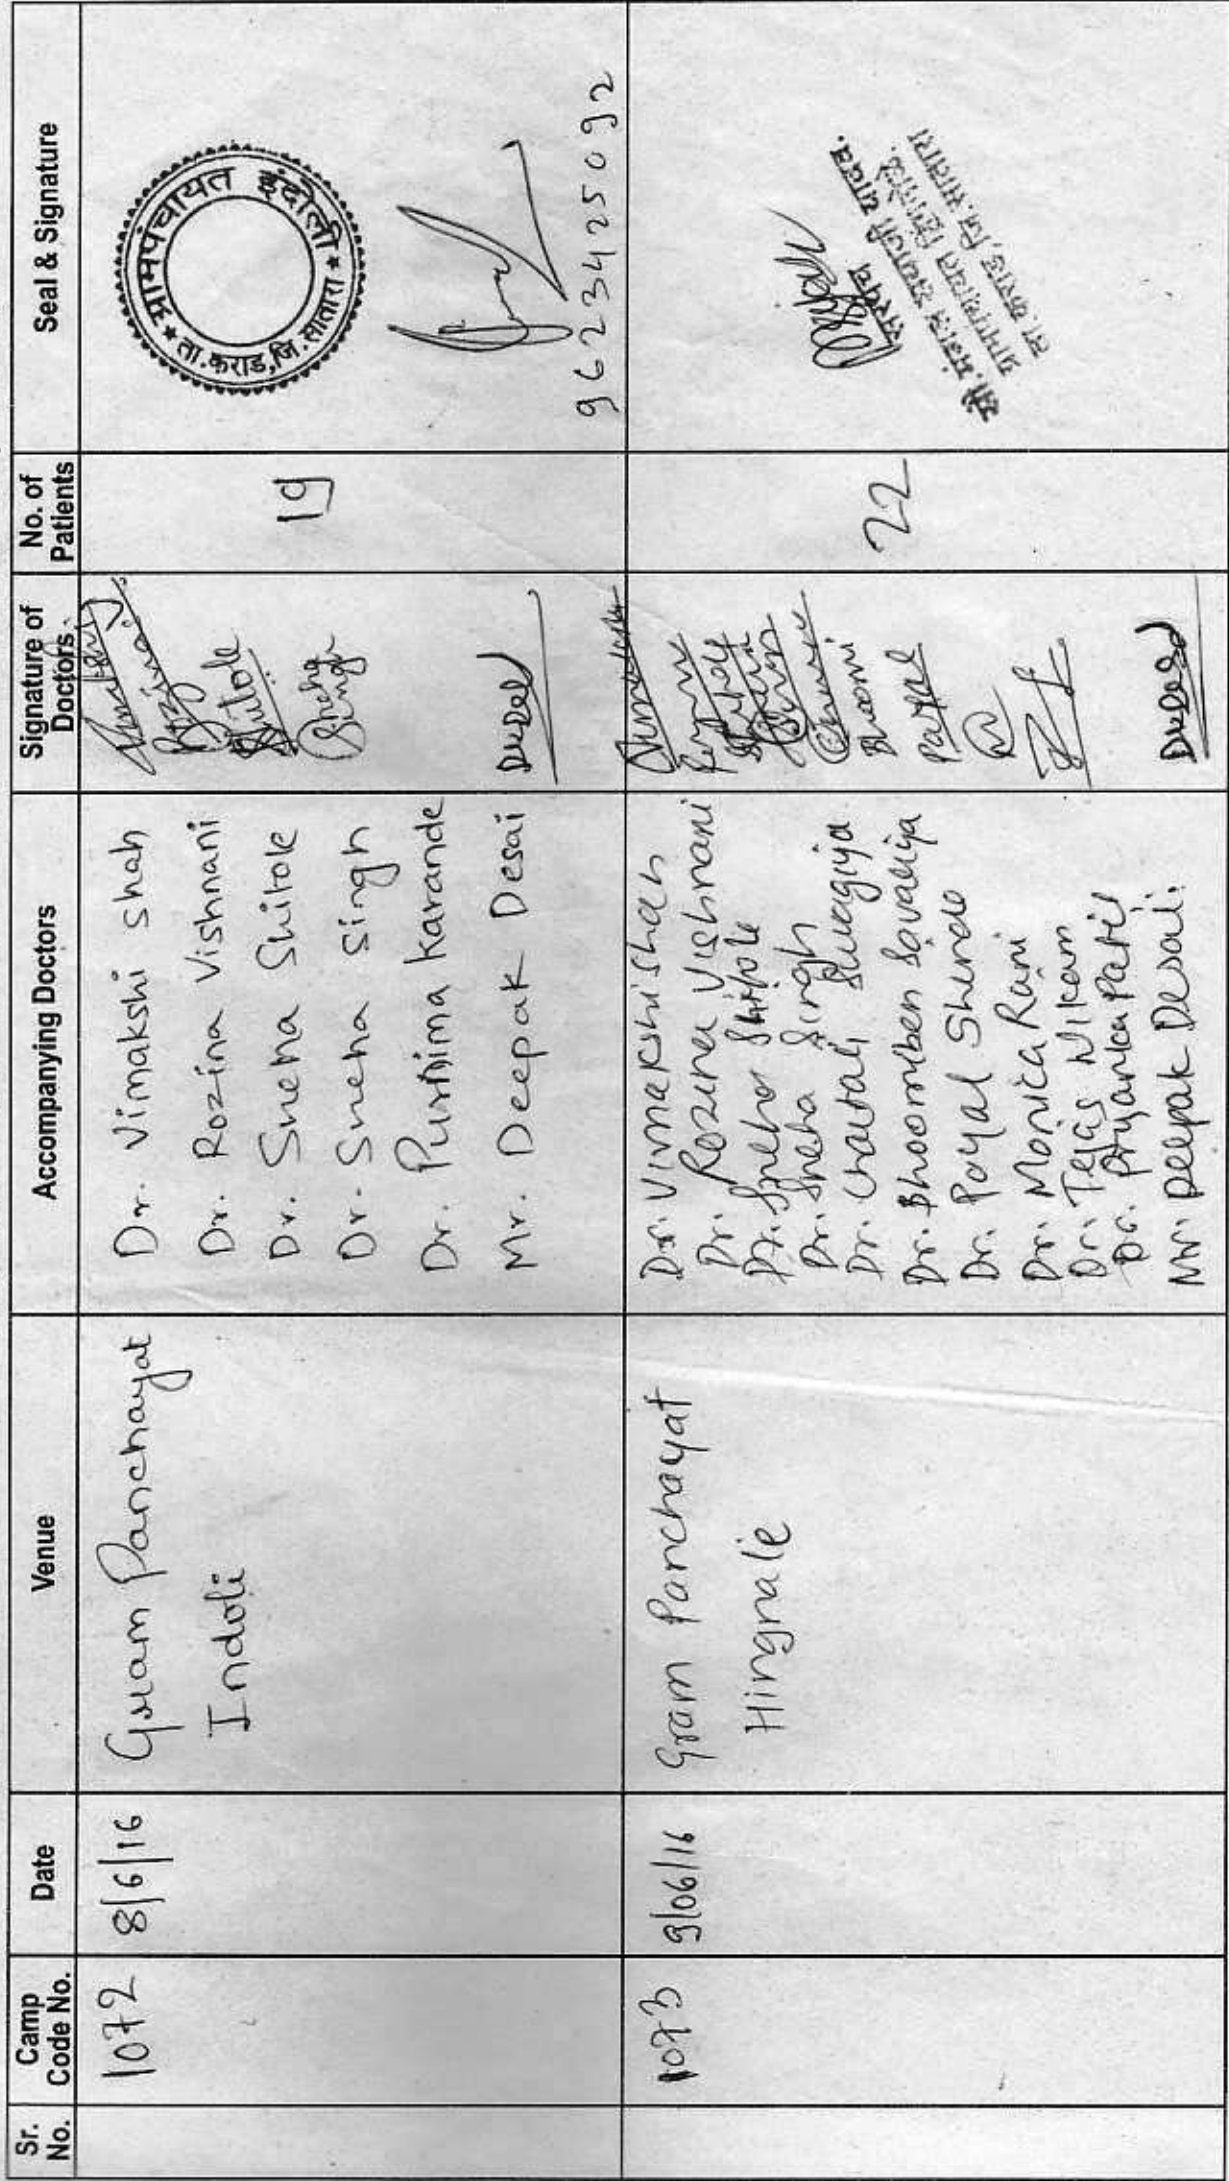 Sr. No.
Camp Code No.
Date
Venue
Accompanying Doctors
Signature of Doctors
No. of Patients
Seal & Signature
1072
8/6/16
Gram Panchayat
Indoli
Dr. Vimakshi shah
Dr. Rozina Vishnani
Dr. Sneha Shitole
Dr. Sneha Singh
Dr. Purnima Karande
Mr. Deepak Desai
Rozina
Shitole
Sneha Singh
19
ग्रामपंचायत इंदोली
ता.कराड,जि.सातारा
9623425092
1073
9/06/16
Gram Panchayat
Hingnale
Dr. Vimakshi shah
Dr. Rozina Vishnani
Dr. Sneha Shitole
Dr. Sneha Singh
Dr. Chaitali
Dr. Bhoomiben Savaliya
Dr. Payal Shinde
Dr. Monica Rani
Dr. Tejas Nikam
Dr. Priyanka Patil
Mr. Deepak Desai.
Bhoomi
Payal
22
सरपंच
ता. कराड, जि. सातारा